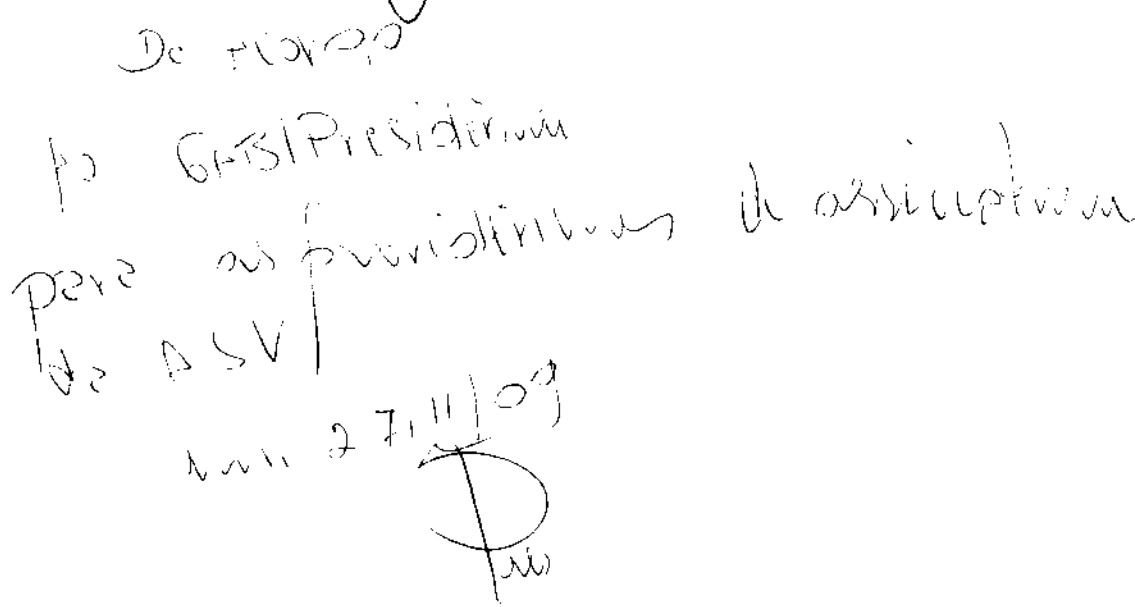 De
GAB/Presidência
para as providências de assinatura
da ASV
em, 27,11,09